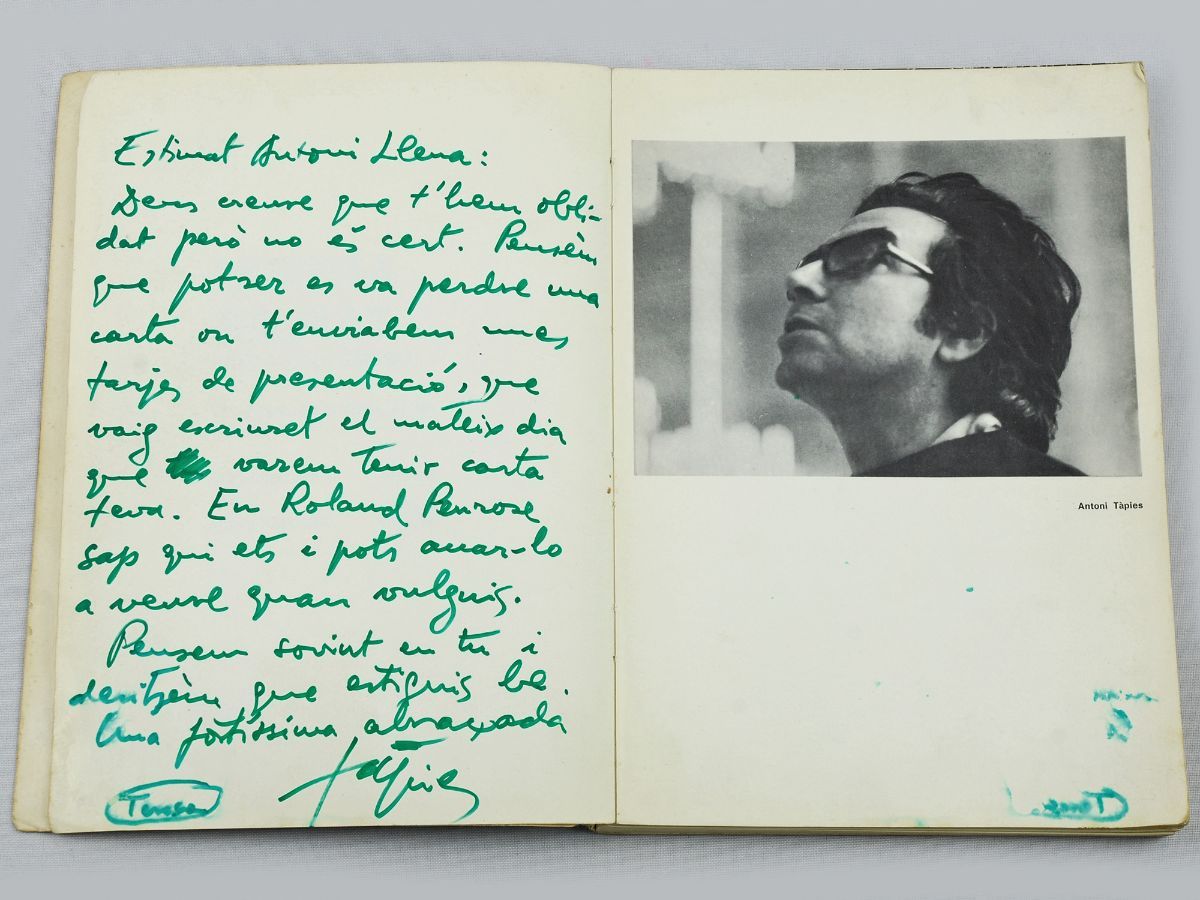 Estimat Antoni Llena:
Deus creure que t'hem obbli-
dat però no és cert. Pensèm
que potser es va perdre una
carta on t'enviabem unes
tarjes de presentació, que
vaig escriuret el mateix dia
que varem tenir carta
teva. En Roland Penrose
sap qui ets i pots anar-lo
a veure quan vulguis.
Pensem sovint en tu i
desitjèm que estiguis be.
Una fortíssima abraçada
Tàpies
Teresa
Antoni Tàpies